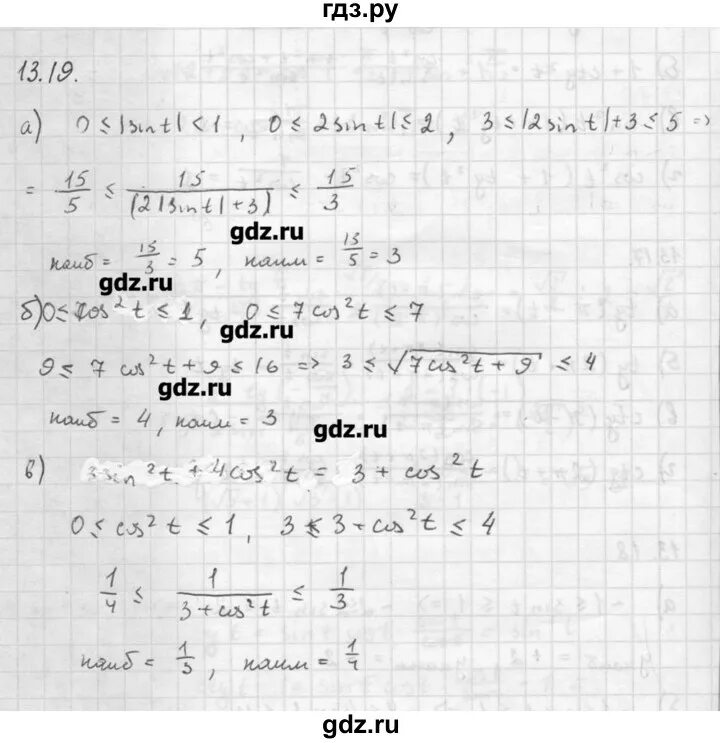 гдз.ру
13.19.
а) 0 ≤ |sin t| < 1, 0 ≤ 2sin t| ≤ 2, 3 ≤ |2sin t|+3 ≤ 5 =>
= 15/5 ≤ 15/(2|sin t|+3) ≤ 15/3
gdz.ru
наиб = 15/3 = 5, наим = 15/5 = 3
gdz.ru
gdz.ru
б) 0 ≤ cos² t ≤ 1, 0 ≤ 7cos² t ≤ 7
gdz.ru
9 ≤ 7 cos² t + 9 ≤ 16 => 3 ≤ √(7cos² t + 9) ≤ 4
gdz.ru
наиб = 4, наим = 3
gdz.ru
в) 3sin² t + 4cos² t = 3 + cos² t
0 ≤ cos² t ≤ 1, 3 ≤ 3 + cos² t ≤ 4
1/4 ≤ 1/(3 + cos² t) ≤ 1/3
наиб = 1/3, наим = 1/4
gdz.ru